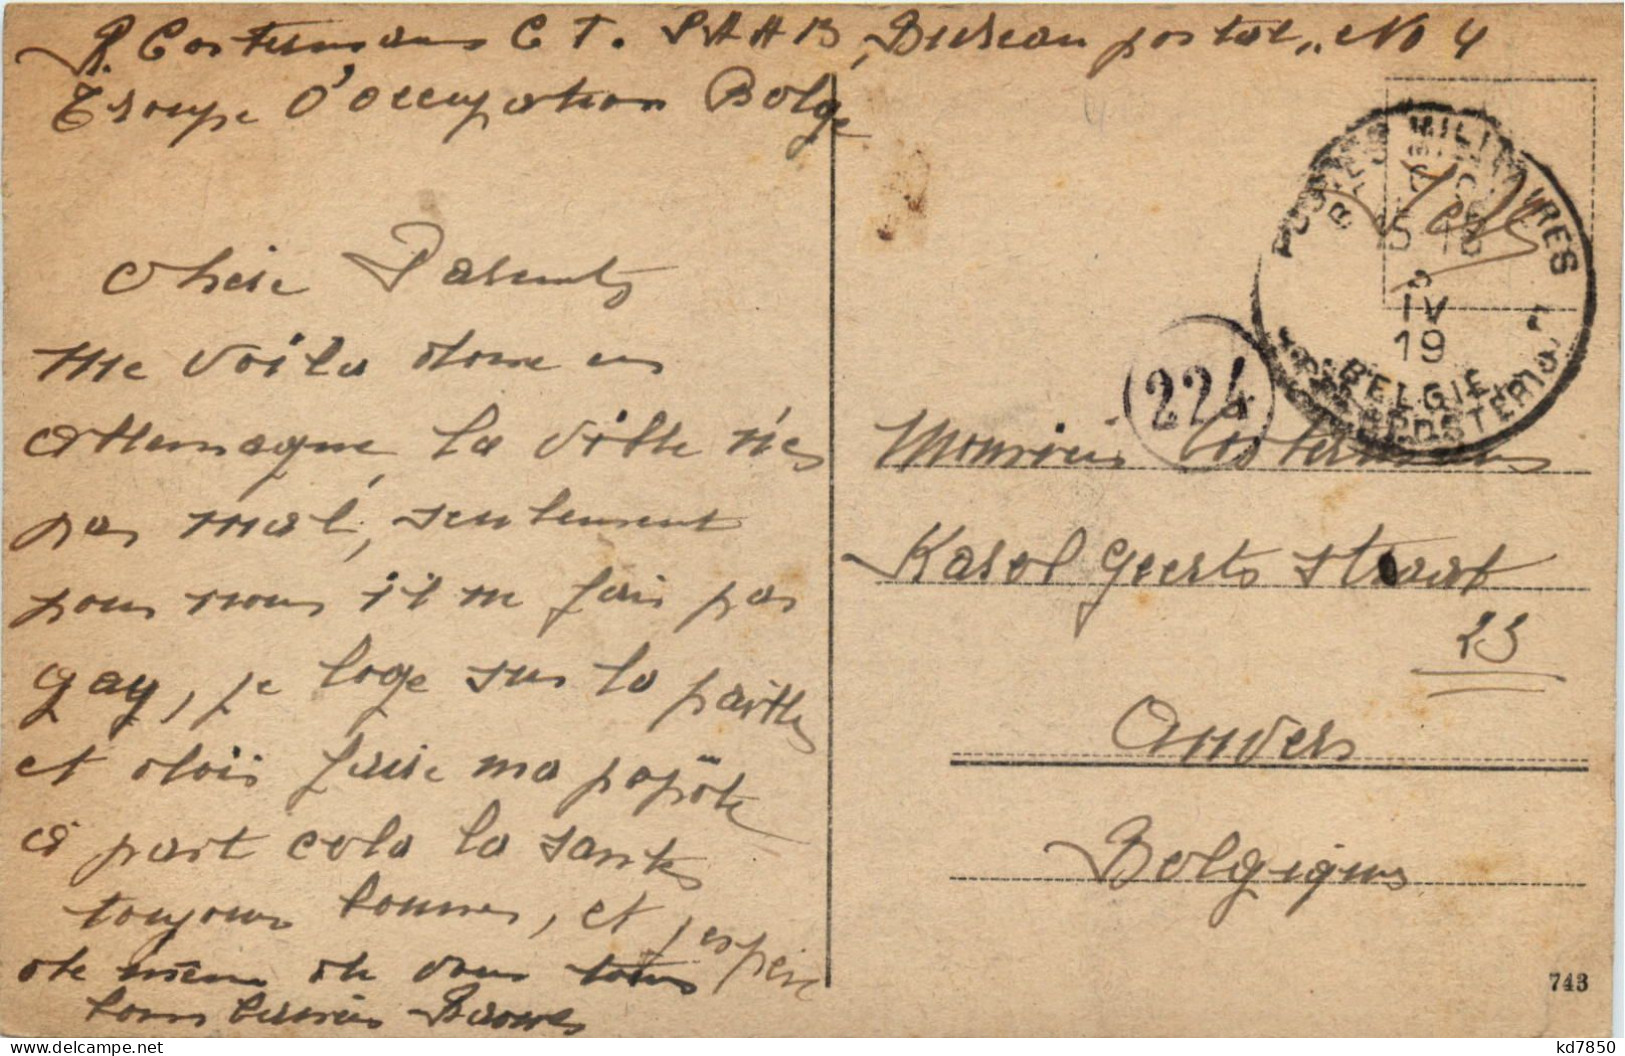 R. Costermans C T. P.A.A.B, Bureau postal, No 4
Troupe d'occupation Belge
Chère Parents
Me voila donc en
Allemagne, la ville n'es
pas mal, seulement
pour nous il ne fais pas
gay, je loge sur la paille
et dois faire ma popôte
à part cela la santé
toujours bonne, et j'espère
de même de vous tous
POSTES MILITAIRES
5 IV 19
BELGIE
224
Monsieur Costermans
Karel Geerts straat
23
Anvers
Belgique
743
kd7850